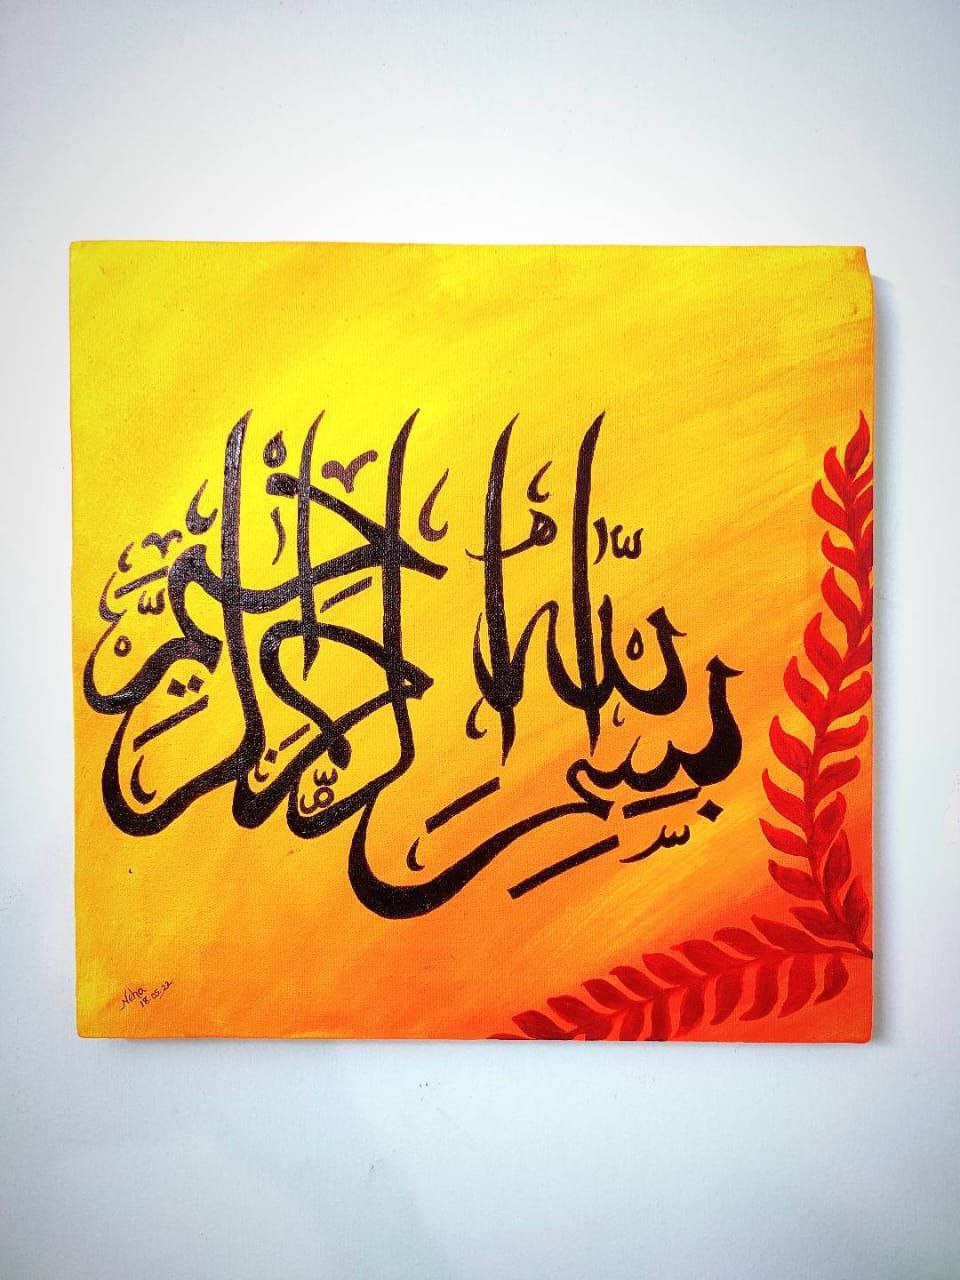 بسم الله الرحمن الرحيم
Neha
18.05.22